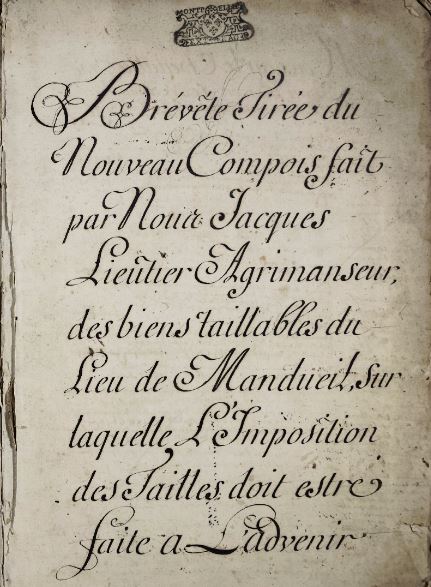 MONTPELLIER
Brévète Tirée du
Nouveau Compois fait
par Nous Jacques
Lieutier Agrimanseur,
des biens taillables du
Lieu de Mandueil, sur
laquelle L'Imposition
des Tailles doit estre
faite a L'advenir